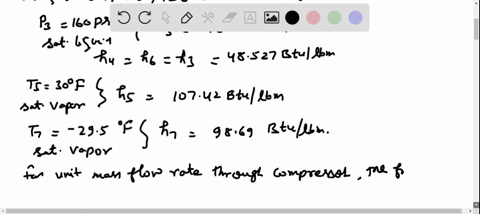 P3 = 160 psi
sat. liquid
h4 = h6 = h3 = 48.527 Btu/lbm
T5 = 30°F } h5 = 107.42 Btu/lbm
sat vapor
T7 = -29.5 °F } h7 = 98.69 Btu/lbm.
sat. vapor
for unit mass flow rate through compressor, the f